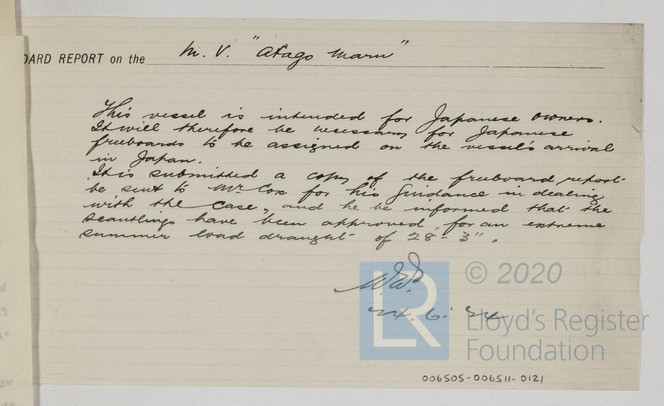 OARD REPORT on the M. V. "Atago Maru"
This vessel is intended for Japanese owners.
It will therefore be necessary for Japanese
freeboards to be assigned on the vessel's arrival
in Japan.
It is submitted a copy of the freeboard report
be sent to Mr Cox for his guidance in dealing
with the case, and he be informed that the
scantlings have been approved, for an extreme
summer load draught of 28'-3".
24.6.24
© 2020
LR
Lloyd's Register
Foundation
006505-006511-0121